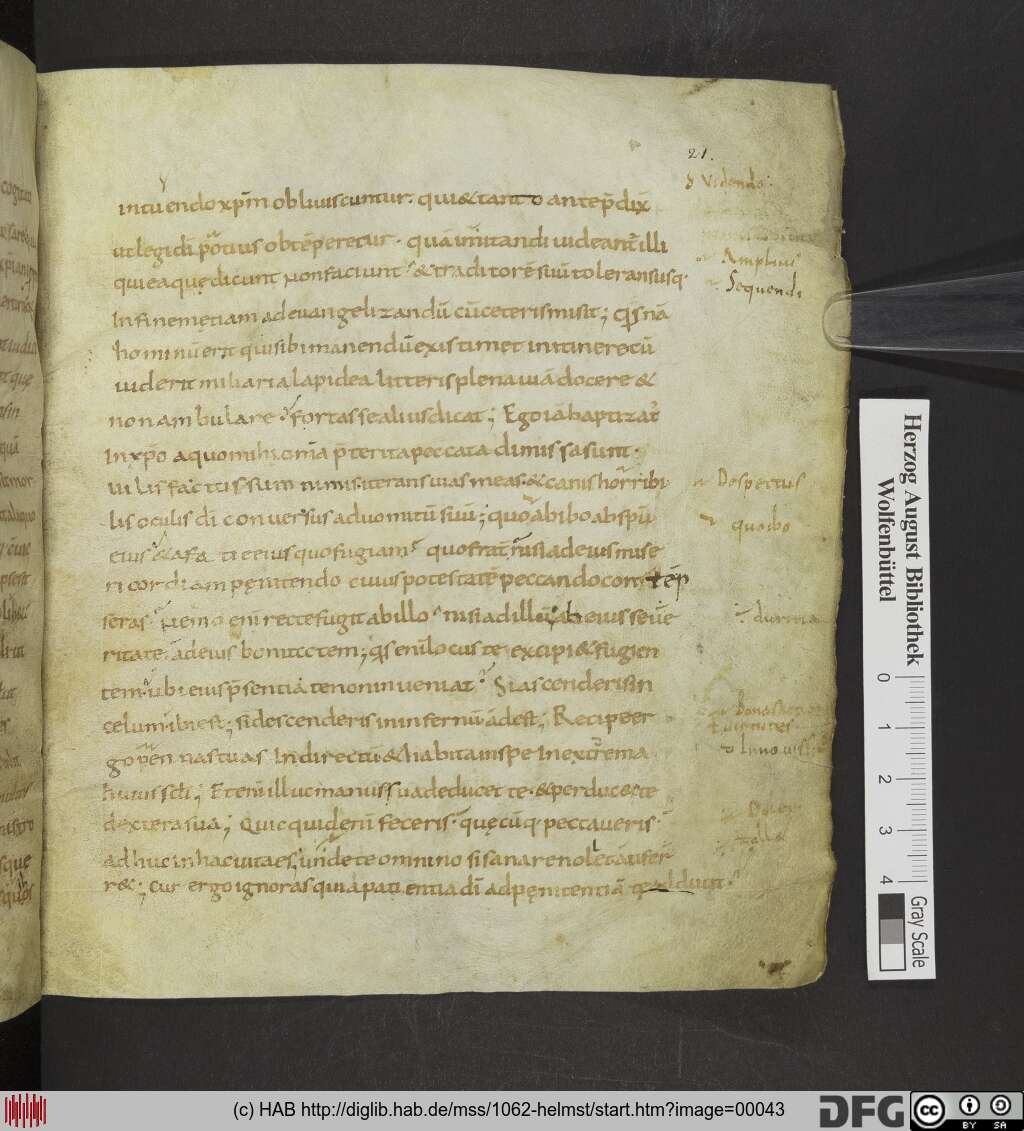 21.
intuendo xp̄m obliviscuntur. qui & tanto antep̄dix̄
ut legi dī potius obtēperetur. quā imitandi videant̄ illi
qui ea quę dicunt non faciunt. & traditorē suū toleransusq;
In finem etiam ad evangelizandū cū ceteris misit; q̄s nā
hominū erit qui sibi manendū existimet in itinere cū
viderit miliaria lapidea litteris plena viā docere &
non ambulare. fortasse alius dicat; Ego iā baptizat̄
In xp̄o a quo mihi om̄a p̄terita peccata dimissa sunt.
vilis factus sum nimis iterans vias meas. & canis horribi
lis oculis dī conversus ad vomitū suū; quo abibo ab sp̄ū
eius & a facie eius quo fugiam. quo frat̄ nisi ad eius mise
ricordiam pęnitendo cuius potestatē peccando contēp
seras. nemo eni recte fugit ab illo. nisi ad illū ab eius seve
ritate ad eius bonitatem; q̄s eni locus te excipi & fugien
tem. ubi eius p̄sentiā te non inveniat. Si ascenderis in
celum ibi est; si descenderis in infernū adest; Recipe er
go pennas tuas In directū & habita in spe In extrema
huius scli; Eteni illuc manus sua deducet te. & perducet te
dextera sua; Quicquid eni feceris. quęcūq; peccaveris.
adhuc in hac vita es, unde te omnino si sanare nollet aufer
ret; cur ergo ignoras quia patientia dī ad pęnitentiā te adducit.
videndo.
Amplius
Sequendi
Despectus
quo ibo
duritia
Herzog August Bibliothek
Wolfenbüttel
0 1 2 3 4
Gray Scale
(c) HAB http://diglib.hab.de/mss/1062-helmst/start.htm?image=00043
DFG
cc BY SA